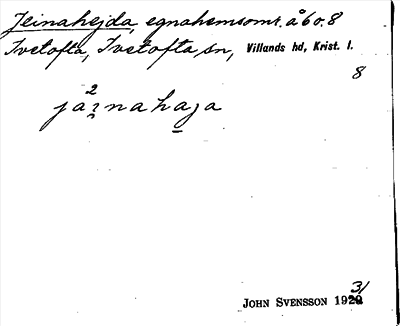 Jeinahejda, egnahemsomr. å 6 o. 8
Ivetofta, Ivetofta sn, Villands hd, Krist. l.
8
JOHN SVENSSON 1931